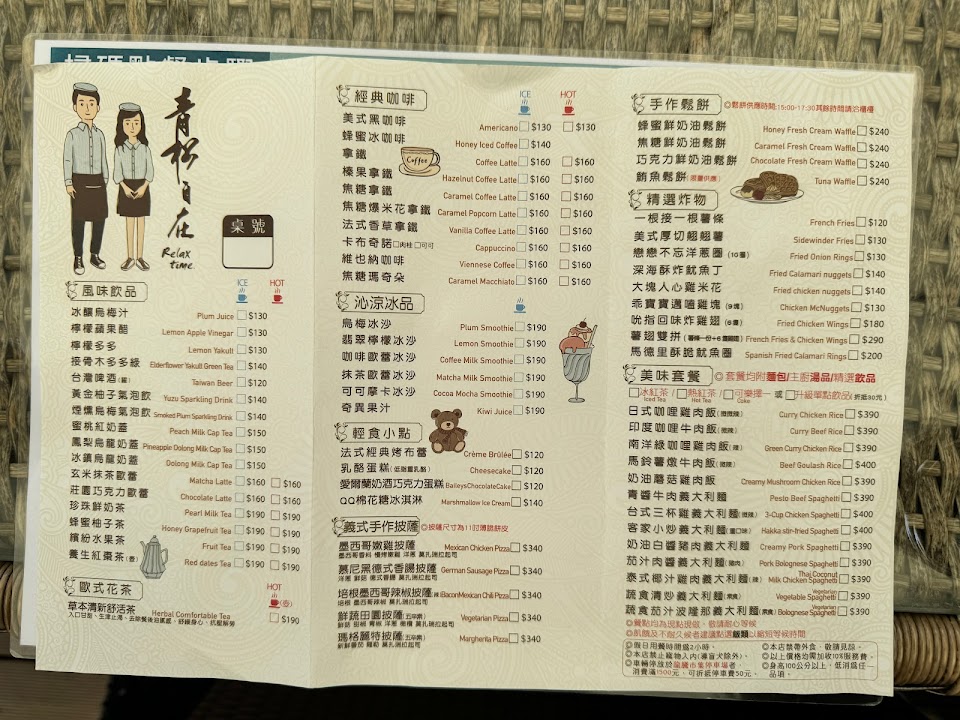 掃碼點餐步驟
青松自在
Relax time
桌號
風味飲品 ICE HOT
冰釀烏梅汁 Plum Juice $130
檸檬蘋果醋 Lemon Apple Vinegar $130
檸檬多多 Lemon Yakult $130
接骨木多多綠 Elderflower Yakult Green Tea $140
台灣啤酒(罐) Taiwan Beer $120
黃金柚子氣泡飲 Yuzu Sparkling Drink $140
煙燻烏梅氣泡飲 Smoked Plum Sparkling Drink $140
蜜桃紅奶蓋 Peach Milk Cap Tea $150
鳳梨烏龍奶蓋 Pineapple Dolong Milk Cap Tea $150
冰鎮烏龍奶蓋 Dolong Milk Cap Tea $150
玄米抹茶歐蕾 Matcha Latte $160 $160
莊園巧克力歐蕾 Chocolate Latte $160 $160
珍珠鮮奶茶 Pearl Milk Tea $190 $190
蜂蜜柚子茶 Honey Grapefruit Tea $190 $190
繽紛水果茶 Fruit Tea $190 $190
養生紅棗茶(壺) Red dates Tea $190 $190
歐式花茶 HOT (壺)
草本清新舒活茶 Herbal Comfortable Tea $190
入口甘甜、生津止渴、去除餐後油膩感、舒緩身心、抗壓解勞
經典咖啡 ICE HOT
美式黑咖啡 Americano $130 $130
蜂蜜冰咖啡 Honey Iced Coffee $140
拿鐵 Coffee Latte $160 $160
Coffee
榛果拿鐵 Hazelnut Coffee Latte $160 $160
焦糖拿鐵 Caramel Coffee Latte $160 $160
焦糖爆米花拿鐵 Caramel Popcorn Latte $160 $160
法式香草拿鐵 Vanilla Coffee Latte $160 $160
卡布奇諾 肉桂 可可 Cappuccino $160 $160
維也納咖啡 Viennese Coffee $160 $160
焦糖瑪奇朵 Caramel Macchiato $160 $160
沁涼冰品
烏梅冰沙 Plum Smoothie $190
翡翠檸檬冰沙 Lemon Smoothie $190
咖啡歐蕾冰沙 Coffee Milk Smoothie $190
抹茶歐蕾冰沙 Matcha Milk Smoothie $190
可可摩卡冰沙 Cocoa Mocha Smoothie $190
奇異果汁 Kiwi Juice $190
輕食小點
法式經典烤布蕾 Crème Brûlée $120
乳酪蛋糕(低脂重乳酪) Cheesecake $120
愛爾蘭奶酒巧克力蛋糕 BaileysChocolateCake $120
QQ棉花糖冰淇淋 Marshmallow Ice Cream $140
義式手作披薩 ◎披薩尺寸為11吋薄脆餅皮
墨西哥嫩雞披薩 Mexican Chicken Pizza $340
墨西哥香料 慢烤嫩雞 洋蔥 莫扎瑞拉起司
慕尼黑德式香腸披薩 German Sausage Pizza $340
洋蔥 鮮菇 德式香腸 莫扎瑞拉起司
培根墨西哥辣椒披薩(辣) BaconMexican Chili Pizza $340
培根 墨西哥辣椒 莫扎瑞拉起司
鮮蔬田園披薩(五辛素) Vegetarian Pizza $340
鮮菇 甜椒 青椒 洋蔥 橄欖 莫扎瑞拉起司
瑪格麗特披薩(五辛素) Margherita Pizza $340
新鮮番茄 羅勒 莫扎瑞拉起司
手作鬆餅 ◎鬆餅供應時間:15:00-17:30其餘時間請洽櫃檯
蜂蜜鮮奶油鬆餅 Honey Fresh Cream Waffle $240
焦糖鮮奶油鬆餅 Caramel Fresh Cream Waffle $240
巧克力鮮奶油鬆餅 Chocolate Fresh Cream Waffle $240
鮪魚鬆餅(限量供應) Tuna Waffle $240
精選炸物
一根接一根薯條 French Fries $120
美式厚切翹翹薯 Sidewinder Fries $130
戀戀不忘洋蔥圈(10個) Fried Onion Rings $130
深海酥炸魷魚丁 Fried Calamari nuggets $140
大塊人心雞米花 Fried chicken nuggets $140
乖寶寶邁嘻雞塊(9塊) Chicken McNuggets $130
吮指回味炸雞翅(6隻) Fried Chicken Wings $180
薯翅雙拼(薯條一份+6隻雞翅) French Fries & Chicken Wings $290
馬德里酥脆魷魚圈 Spanish Fried Calamari Rings $200
美味套餐 ◎套餐均附麵包/主廚湯品/精選飲品
冰紅茶/ 熱紅茶/ 可樂擇一 或 升級單點飲品(折抵90元)
Iced Tea Hot Tea Coke
日式咖哩雞肉飯(微微辣) Curry Chicken Rice $390
印度咖哩牛肉飯(微辣) Curry Beef Rice $390
南洋綠咖哩雞肉飯(辣) Green Curry Chicken Rice $390
馬鈴薯燉牛肉飯(微辣) Beef Goulash Rice $400
奶油蘑菇雞肉飯 Creamy Mushroom Chicken Rice $390
青醬牛肉義大利麵 Pesto Beef Spaghetti $390
台式三杯雞義大利麵(微辣) 3-Cup Chicken Spaghetti $400
客家小炒義大利麵(重口味) Hakka stir-fried Spaghetti $400
奶油白醬豬肉義大利麵 Creamy Pork Spaghetti $390
茄汁肉醬義大利麵(豬肉) Pork Bolognese Spaghetti $390
泰式椰汁雞肉義大利麵(辣) Thai Coconut Milk Chicken Spaghetti $390
蔬食清炒義大利麵(素食) Vegetarian Vegetable Spaghetti $390
蔬食茄汁波隆那義大利麵(素食) Vegetarian Bolognese Spaghetti $390
◎餐點均為現點現做，敬請耐心等候
◎飢餓及不耐久候者建議點選飯類以縮短等候時間
◎假日用餐時間為2小時。
◎本店禁止寵物入內(導盲犬除外)。
◎車輛停放於龍騰市集停車場者，
消費滿1500元，可折抵停車費50元。
◎本店禁帶外食，敬請見諒。
◎以上價格均需加收10%服務費。
◎身高100公分以上，低消為任一
品項。